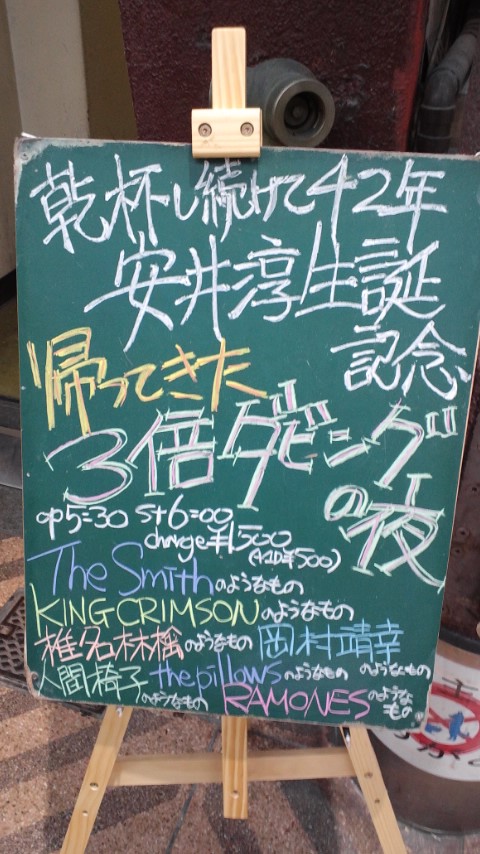 乾杯し続けて42年
安井淳生誕
記念
帰ってきた
3倍ダビング
の夜
op5=30 St6=00
charge¥1500
(+1D¥500)
The Smithのようなもの
KING CRIMSONのようなもの
椎名林檎のようなもの 岡村靖幸のようなもの
人間椅子のようなもの the pillowsのようなもの
RAMONESのようなもの